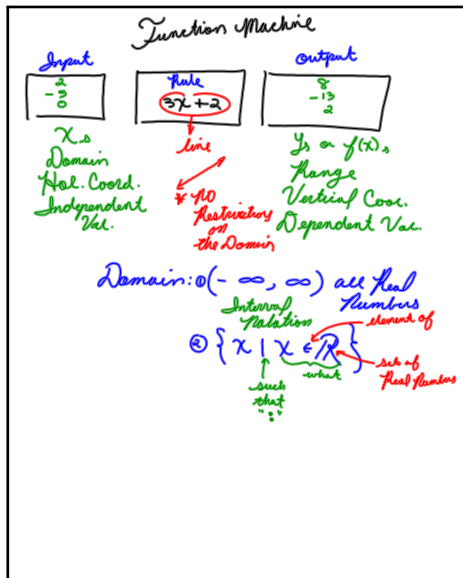 Function Machine
Input
2
-3
0
Rule
3x+2
Output
8
-13
2
Xs
Domain
Hor. Coord.
Independent
Var.
line
* no
Restrictions
on
the Domain
Ys or f(x)s
Range
Vertical Coor.
Dependent Var.
Domain: ① (-∞, ∞) all Real
Numbers
Interval
Notation
element of
② { x | x ∈ ℝ }
such
that
":"
what
set of
Real Numbers